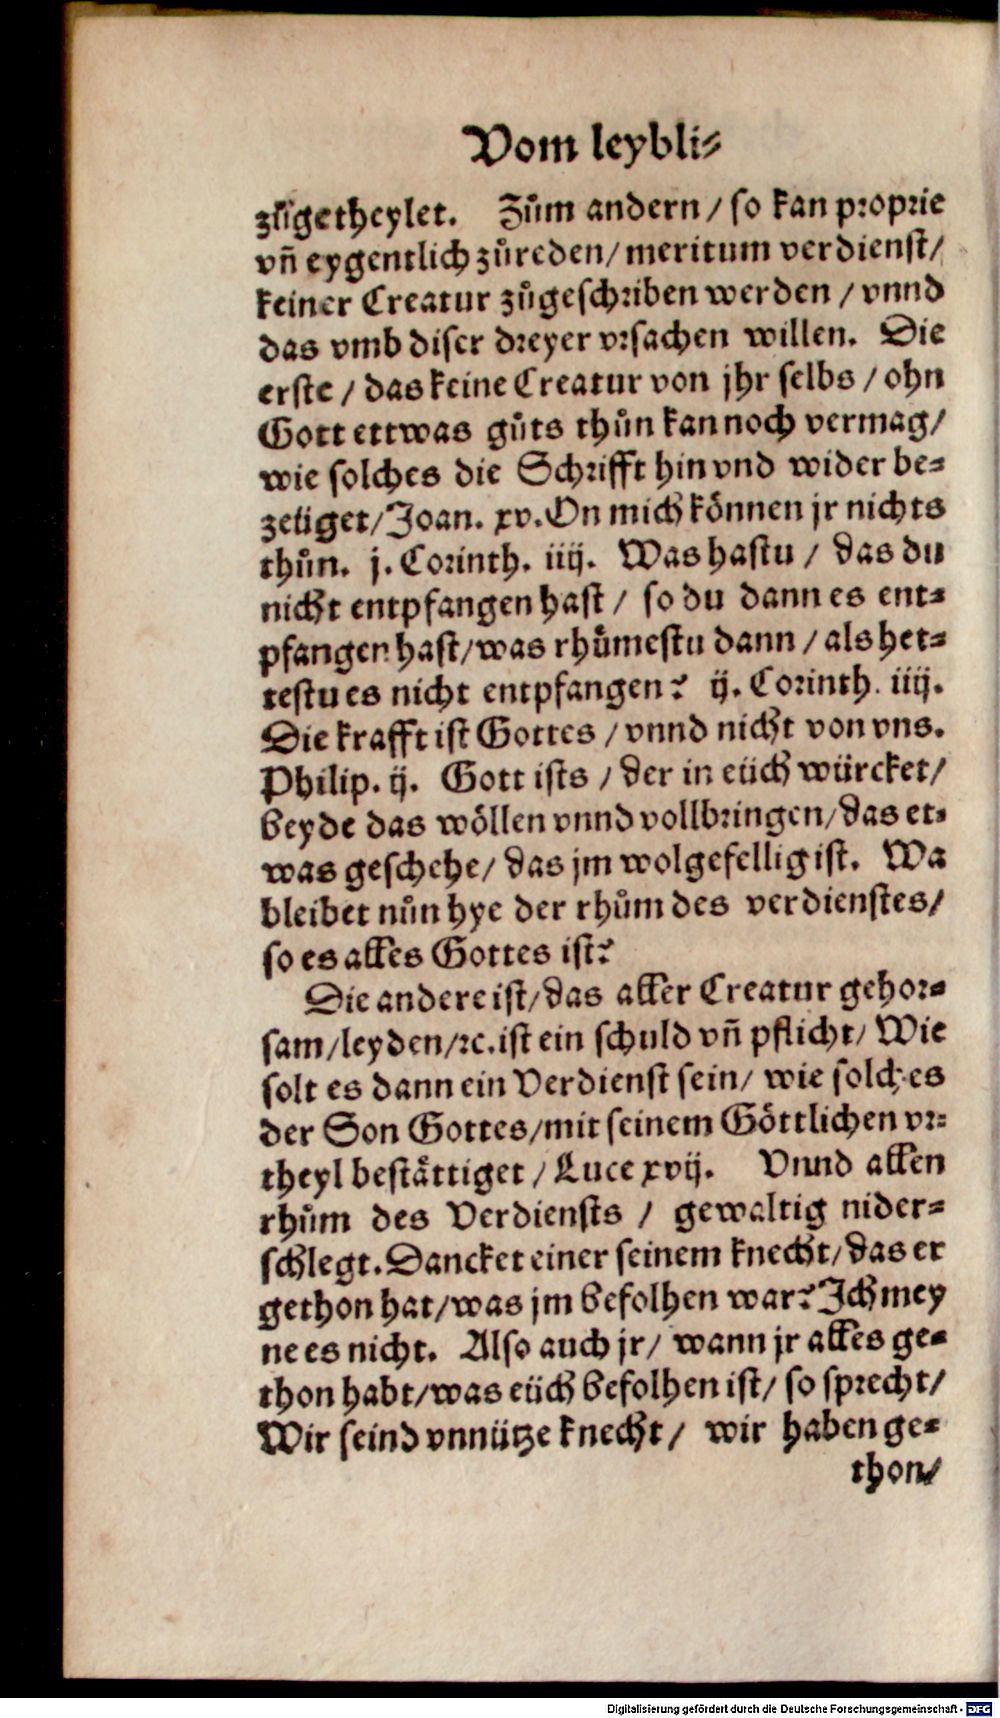 Vom leybli⸗
zůgetheylet. Zům andern / so kan proprie
vñ eygentlich zůreden / meritum verdienst /
keiner Creatur zůgeschriben werden / vnnd
das vmb diser dreyer vrsachen willen. Die
erste / das keine Creatur von jhr selbs / ohn
Gott ettwas gůts thůn kan noch vermag /
wie solches die Schrifft hin vnd wider be⸗
zeüget / Joan. xv. On mich können jr nichts
thůn. j. Corinth. iiij. Was hastu / das du
nicht entpfangen hast / so du dann es ent⸗
pfangen hast / was rhůmestu dann / als het⸗
testu es nicht entpfangen? ij. Corinth. iiij.
Die krafft ist Gottes / vnnd nicht von vns.
Philip. ij. Gott ists / der in eüch würcket /
beyde das wöllen vnnd vollbringen / das et⸗
was geschehe / das jm wolgefellig ist. Wa
bleibet nůn hye der rhům des verdienstes /
so es alles Gottes ist?
Die andere ist / das aller Creatur gehor⸗
sam / leyden / ꝛc. ist ein schuld vñ pflicht / Wie
solt es dann ein Verdienst sein / wie solches
der Son Gottes / mit seinem Göttlichen vr⸗
theyl bestättiget / Luce xvij. Vnnd allen
rhům des Verdiensts / gewaltig nider⸗
schlegt. Dancket einer seinem knecht / das er
gethon hat / was jm befolhen war? Ich mey
ne es nicht. Also auch jr / wann jr alles ge⸗
thon habt / was eüch befolhen ist / so sprecht /
Wir seind vnnütze knecht / wir haben ge⸗
thon /
Digitalisierung gefördert durch die Deutsche Forschungsgemeinschaft - DFG